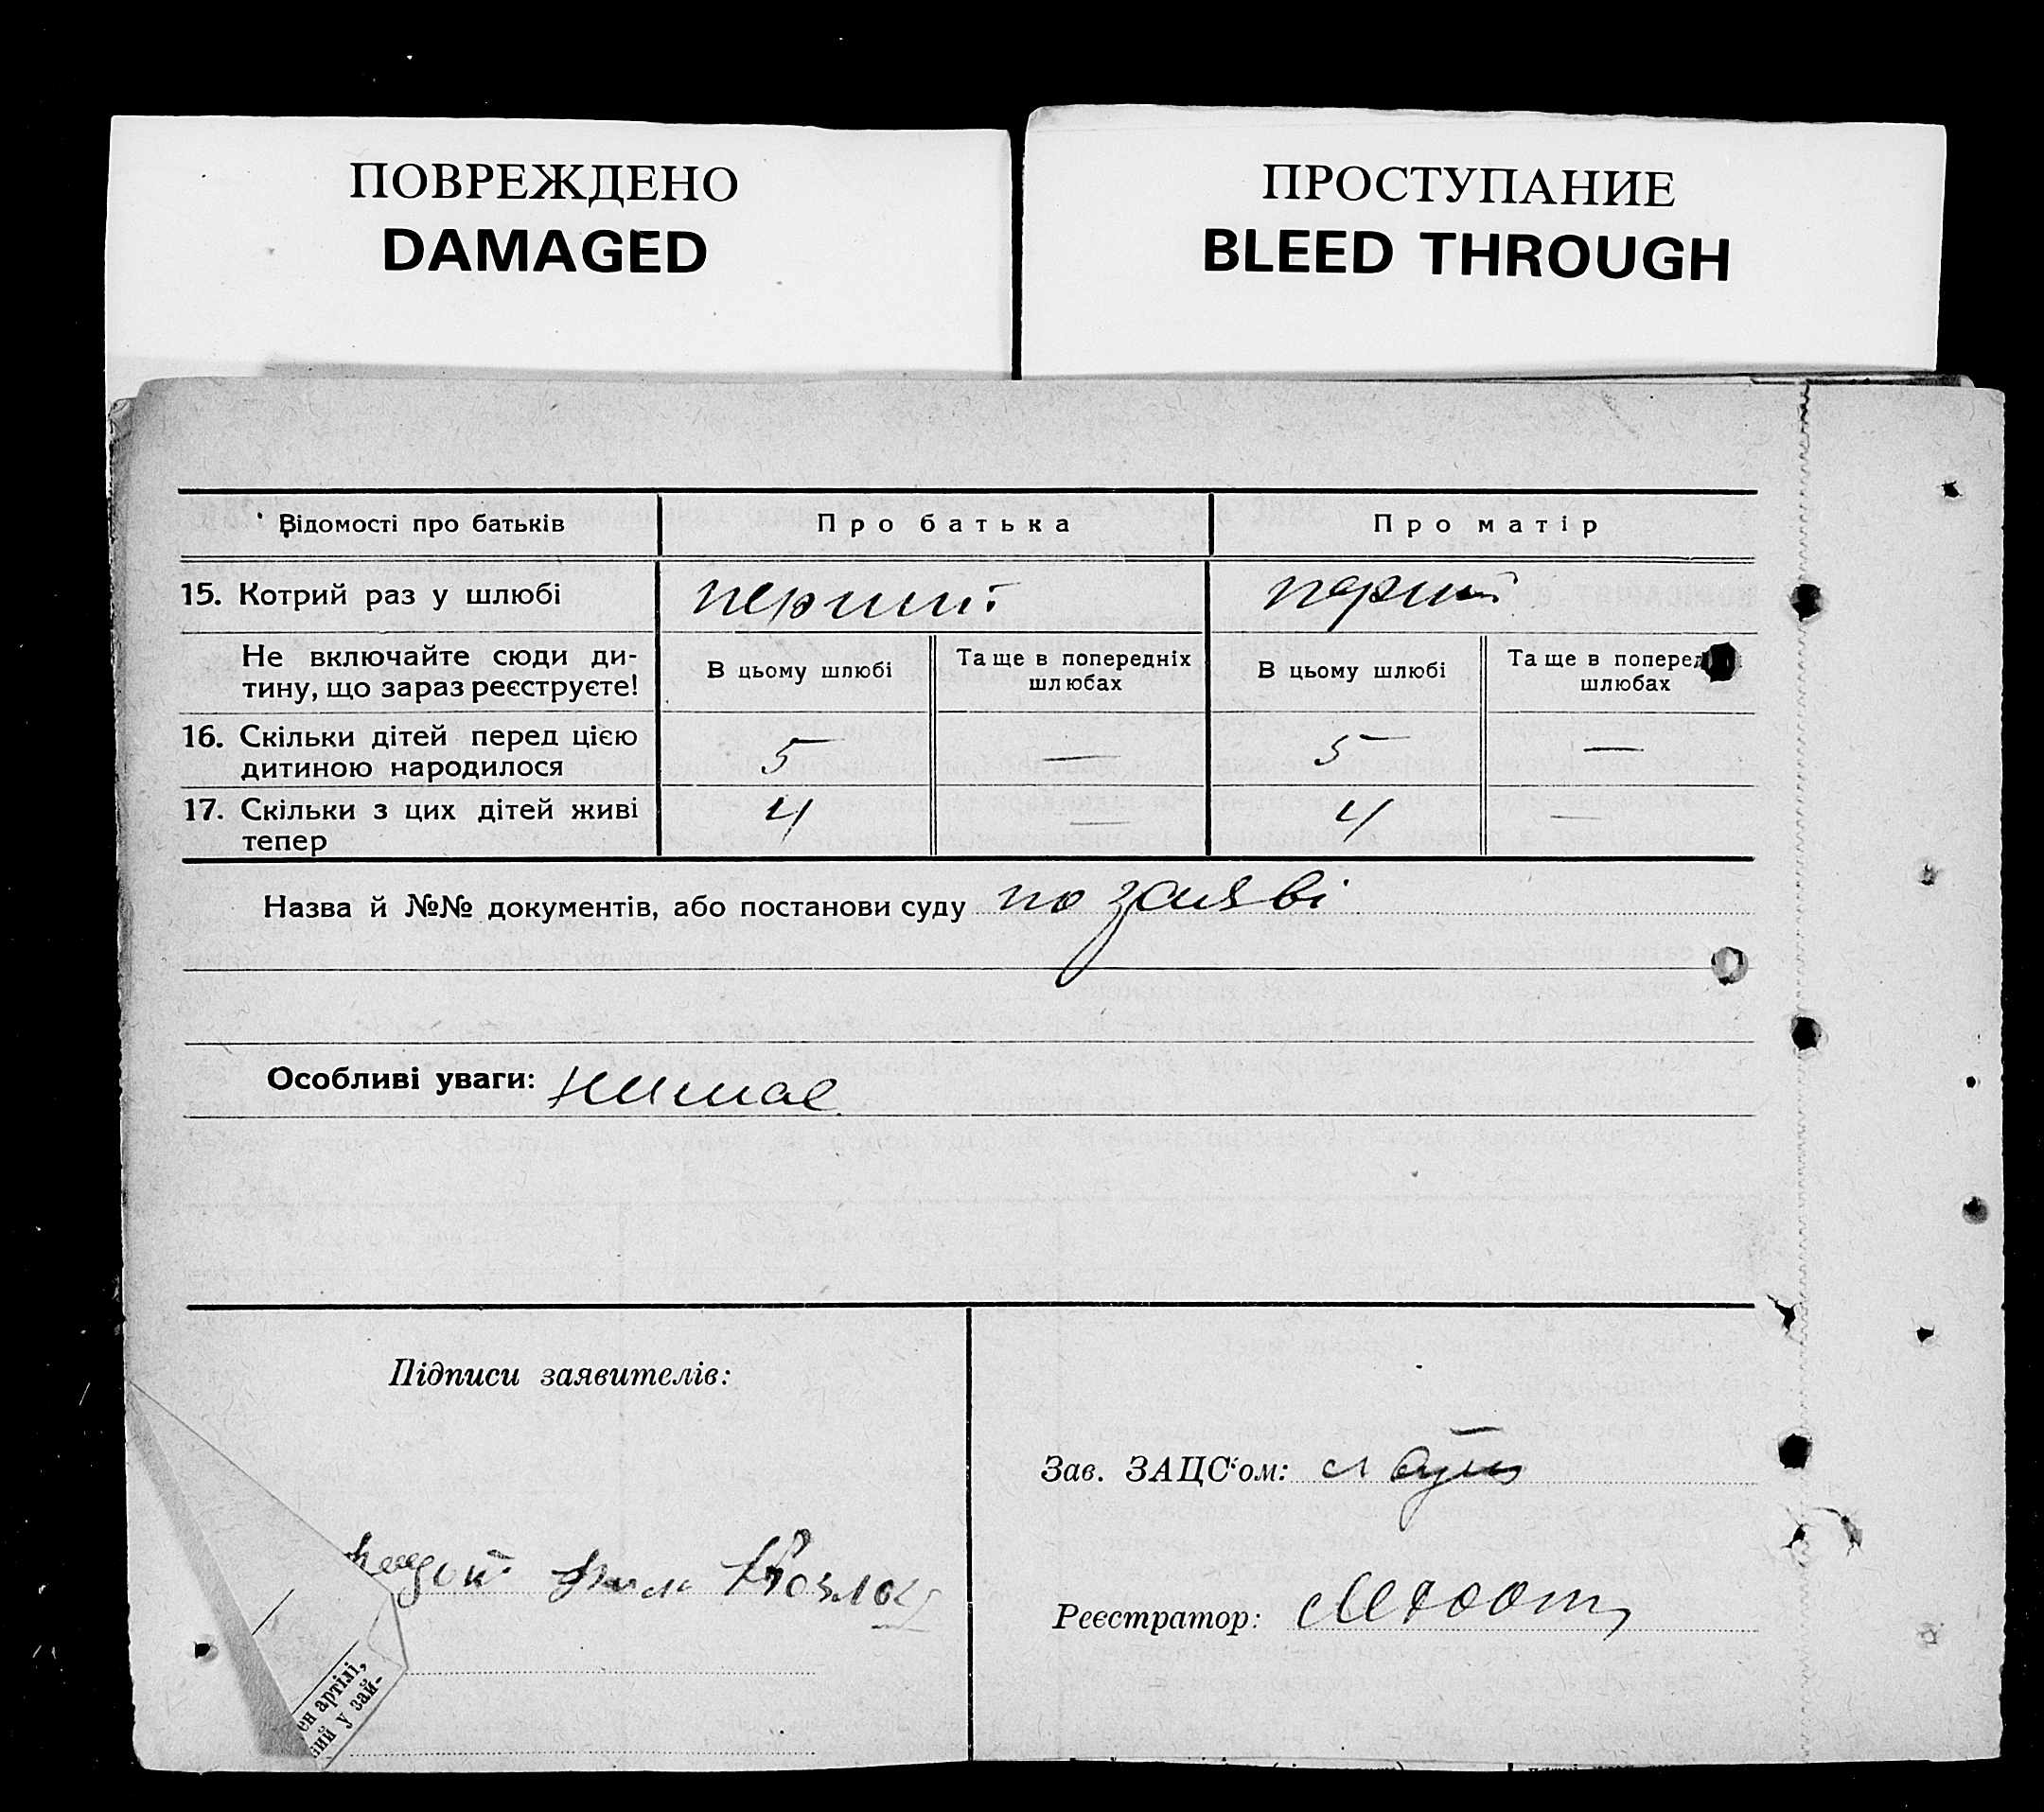 ПОВРЕЖДЕНО
DAMAGED
ПРОСТУПАНИЕ
BLEED THROUGH
Відомості про батьків
Про батька
Про матір
15. Котрий раз у шлюбі
перший
перший
Не включайте сюди ди-
тину, що зараз реєструєте!
В цьому шлюбі
Та ще в попередніх
шлюбах
В цьому шлюбі
Та ще в поперед
шлюбах
16. Скільки дітей перед цією
дитиною народилося
5
—
5
—
17. Скільки з цих дітей живі
тепер
4
—
4
—
Назва й №№ документів, або постанови суду по заяві
Особливі уваги: нимає
Підписи заявителів:
Зав. ЗАЦС'ом:
Реєстратор:
ен артілі,
ий у зай-